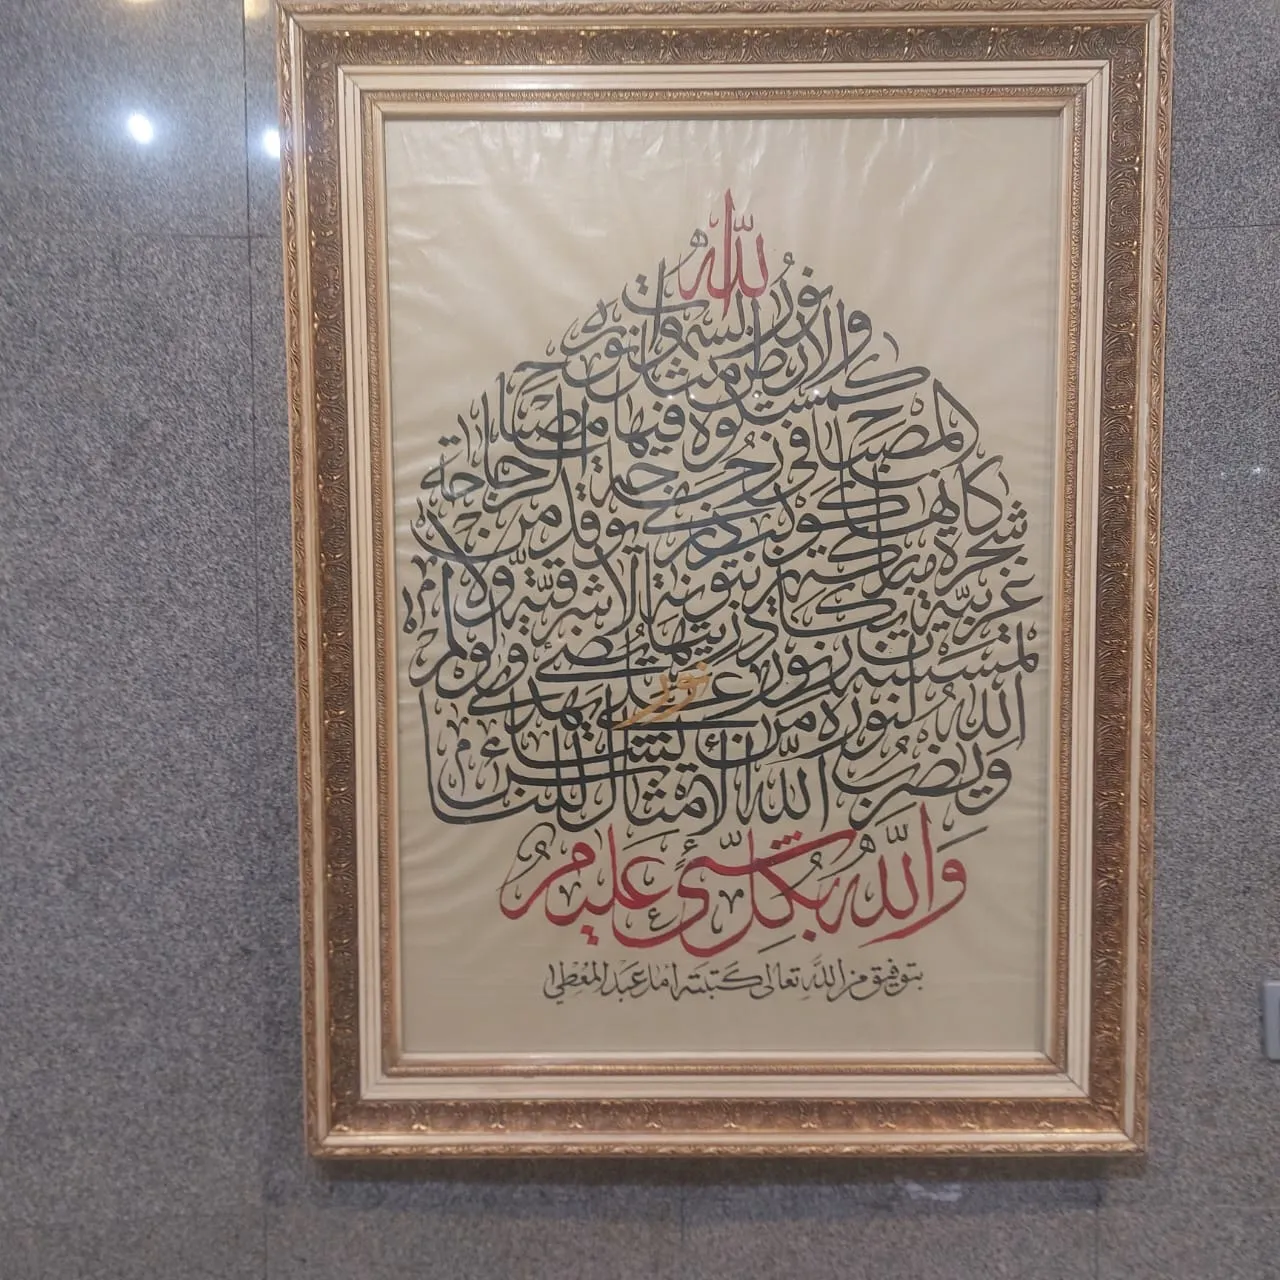 الله
نور السموات
والأرض مثل نوره
كمشكوة فيها مصباح
المصباح في زجاجة الزجاجة
كأنها كوكب دري يوقد من
شجرة مباركة زيتونة لا شرقية ولا
غربية يكاد زيتها يضيء ولو لم
تمسسه نار نور على نور يهدي
الله لنوره من يشاء
ويضرب الله الأمثال للناس
والله بكل شيء عليم
بتوفيق من الله تعالى كتبته امل عبد المعطي